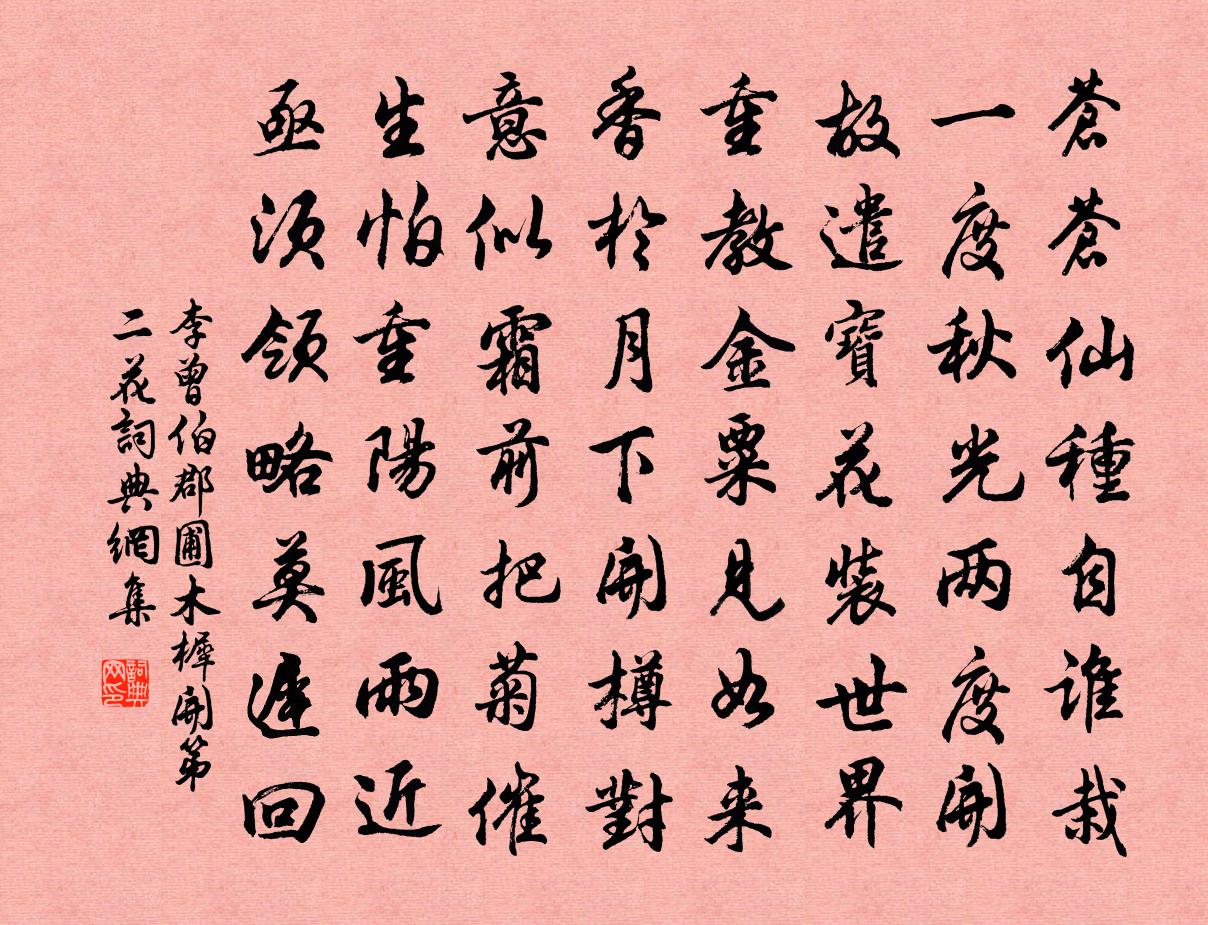 蒼蒼仙種自誰栽
一度秋光两度開
故遣寶花裝世界
重教金粟見如来
香於月下開樽對
意似霜前把菊催
生怕重陽風雨近
亟須領略莫遲回
李曾伯郡圃木樨開第
二花詞典網集
詞典网印